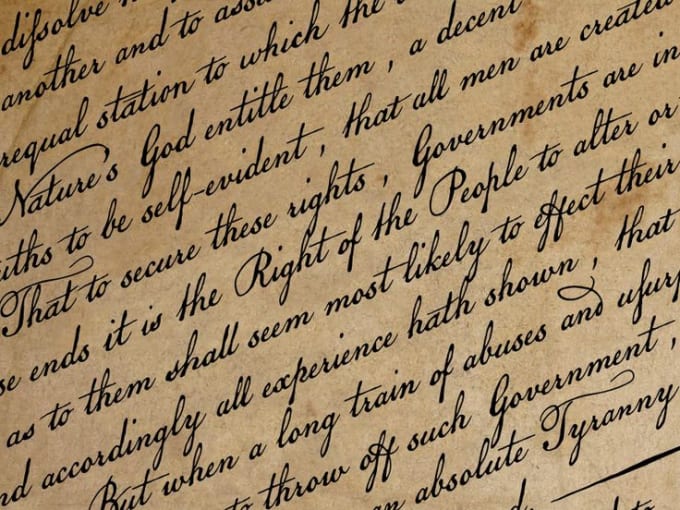 dissolve
another and to assu
requal station to which the
Nature's God entitle them, a decent
uths to be self-evident, that all men are created
That to secure these rights, Governments are in
se ends it is the Right of the People to alter or
as to them shall seem most likely to effect their
nd accordingly all experience hath shown, that
But when a long train of abuses and usurp
to throw off such Government,
an absolute Tyranny